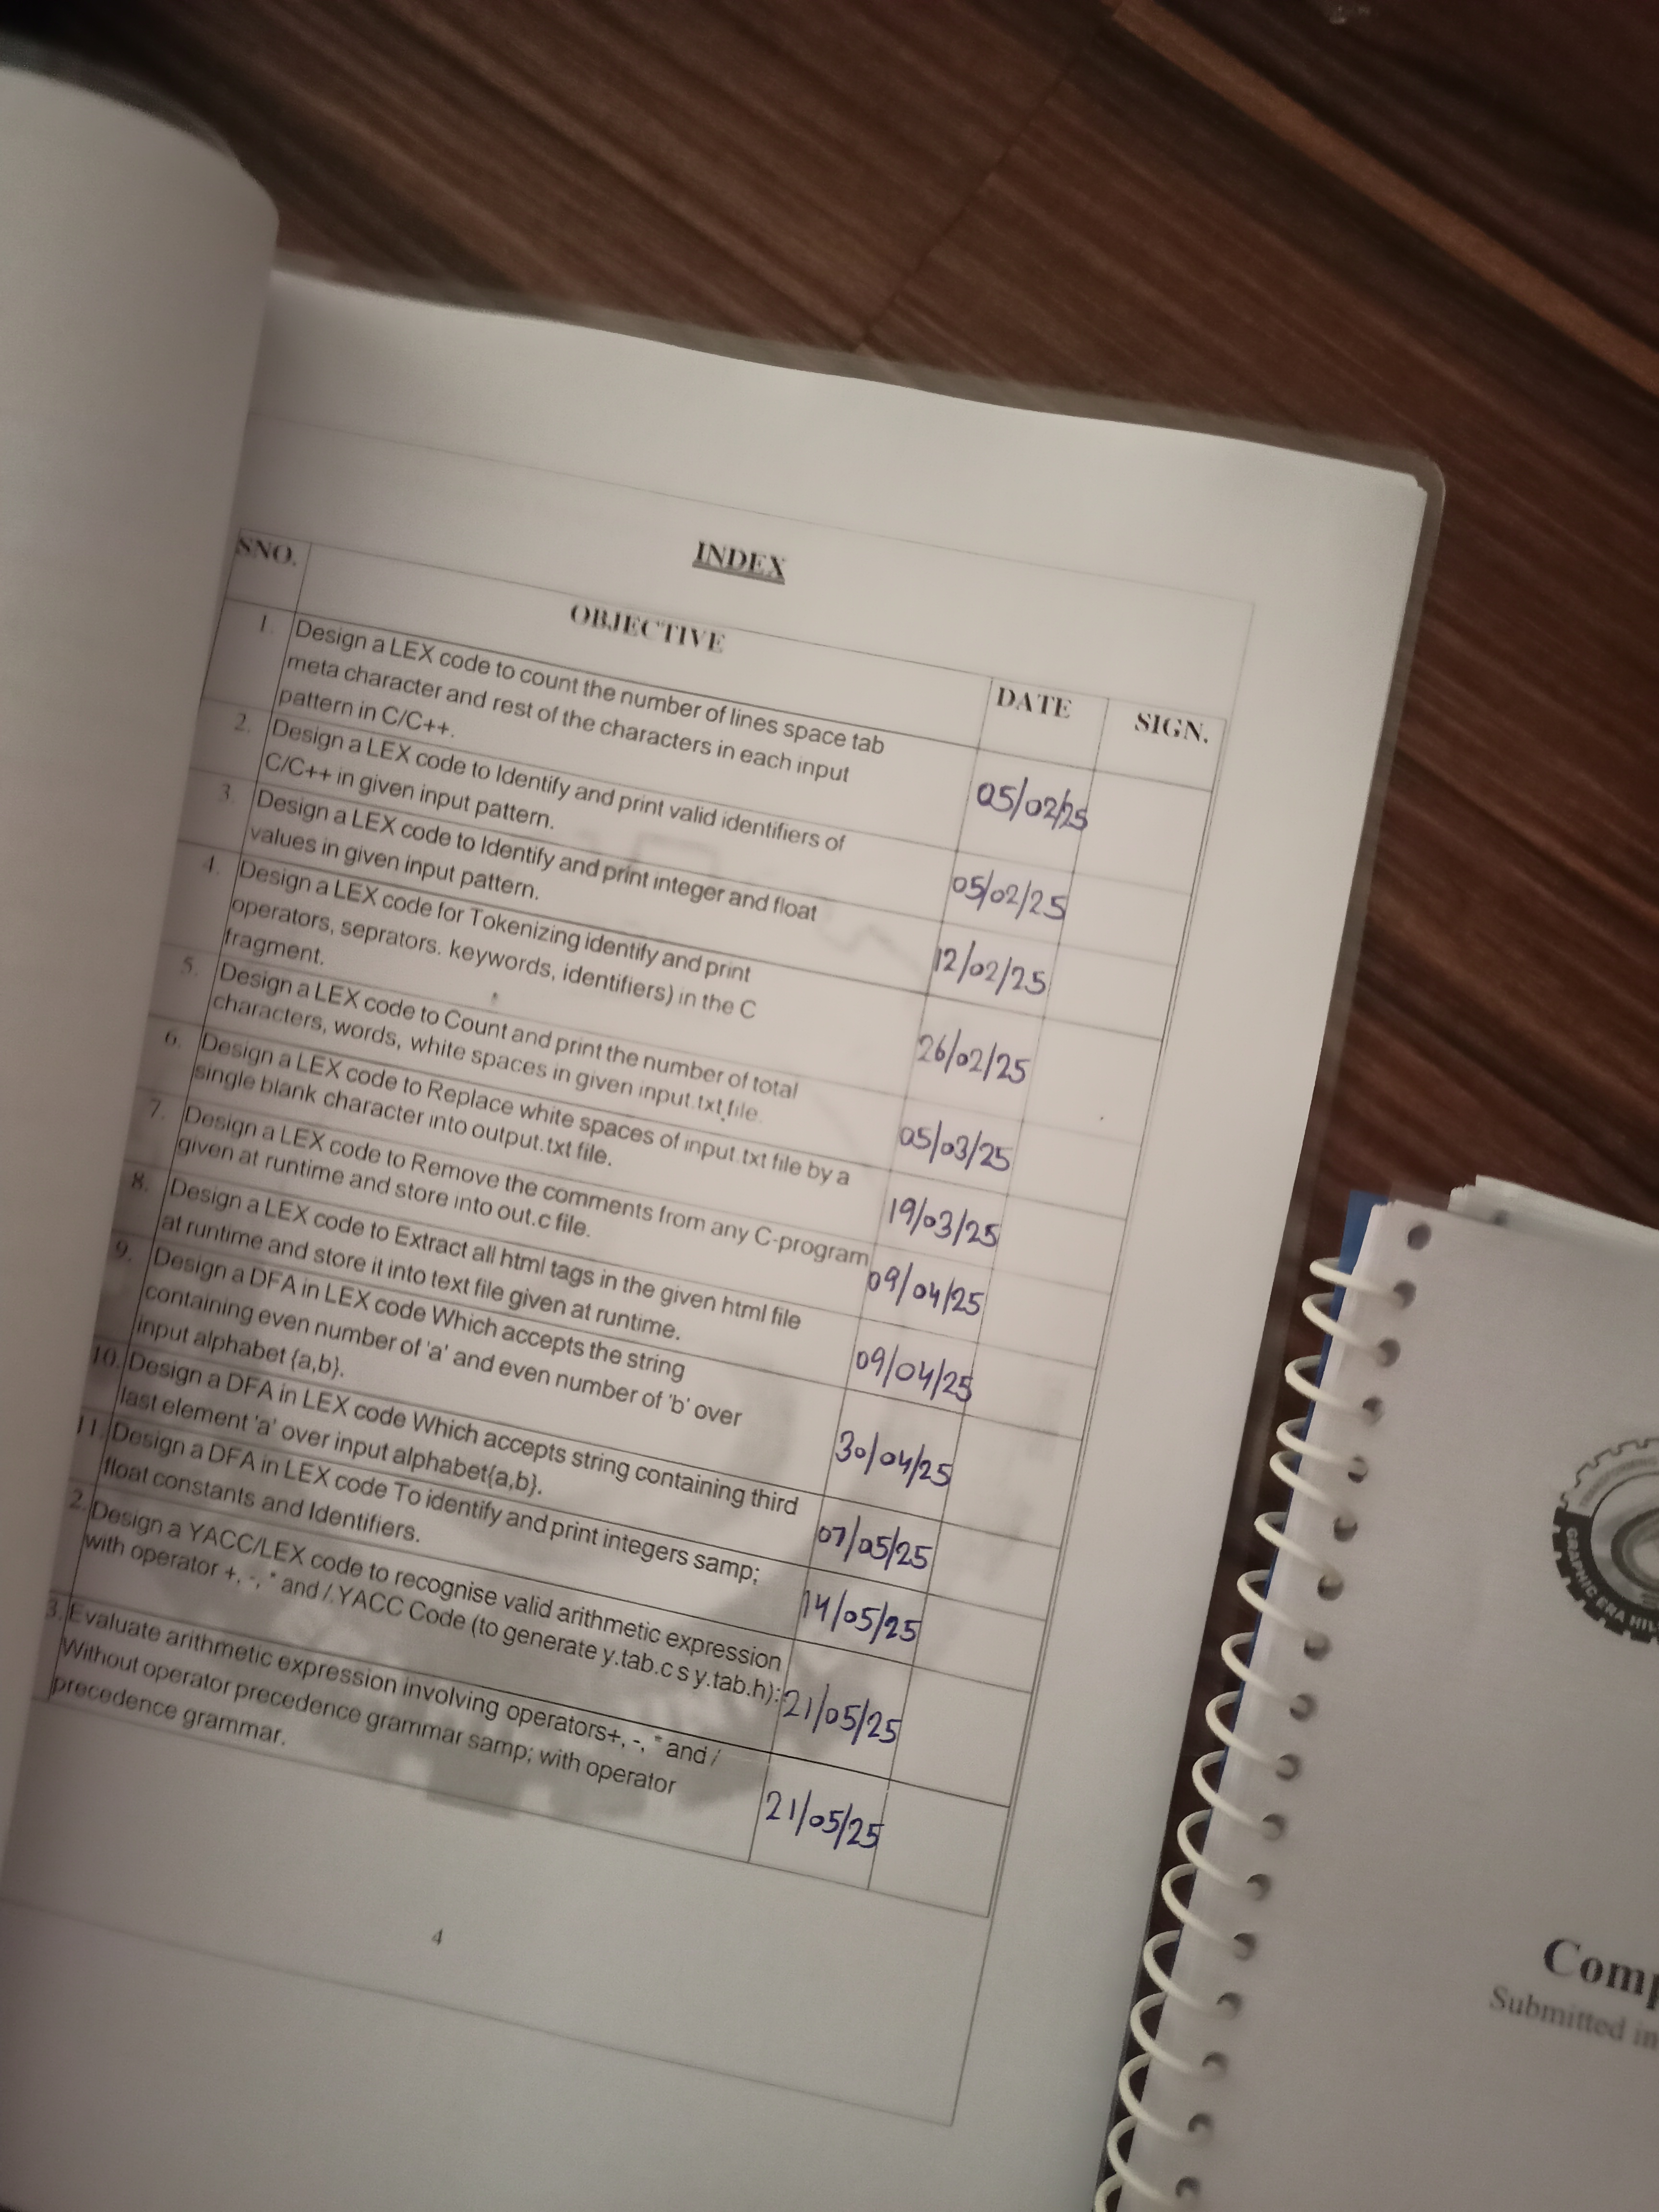 INDEX
SNO.
OBJECTIVE
DATE
SIGN.
1.
Design a LEX code to count the number of lines space tab
meta character and rest of the characters in each input
pattern in C/C++.
05/02/25
2.
Design a LEX code to Identify and print valid identifiers of
C/C++ in given input pattern.
05/02/25
3.
Design a LEX code to Identify and print integer and float
values in given input pattern.
12/02/25
4.
Design a LEX code for Tokenizing identify and print
operators, seprators. keywords, identifiers) in the C
fragment.
26/02/25
5.
Design a LEX code to Count and print the number of total
characters, words, white spaces in given input.txt file.
05/03/25
6.
Design a LEX code to Replace white spaces of input.txt file by a
single blank character into output.txt file.
19/03/25
7.
Design a LEX code to Remove the comments from any C-program
given at runtime and store into out.c file.
09/04/25
8.
Design a LEX code to Extract all html tags in the given html file
at runtime and store it into text file given at runtime.
09/04/25
9.
Design a DFA in LEX code Which accepts the string
containing even number of 'a' and even number of 'b' over
input alphabet {a,b}.
30/04/25
10.
Design a DFA in LEX code Which accepts string containing third
last element 'a' over input alphabet{a,b}.
07/05/25
11.
Design a DFA in LEX code To identify and print integers samp;
float constants and Identifiers.
14/05/25
2.
Design a YACC/LEX code to recognise valid arithmetic expression
with operator +, -, * and /.YACC Code (to generate y.tab.c s y.tab.h):
21/05/25
3.
Evaluate arithmetic expression involving operators+, -, * and /
Without operator precedence grammar samp; with operator
precedence grammar.
21/05/25
4
GRAPHIC ERA HIL
Comp
Submitted in